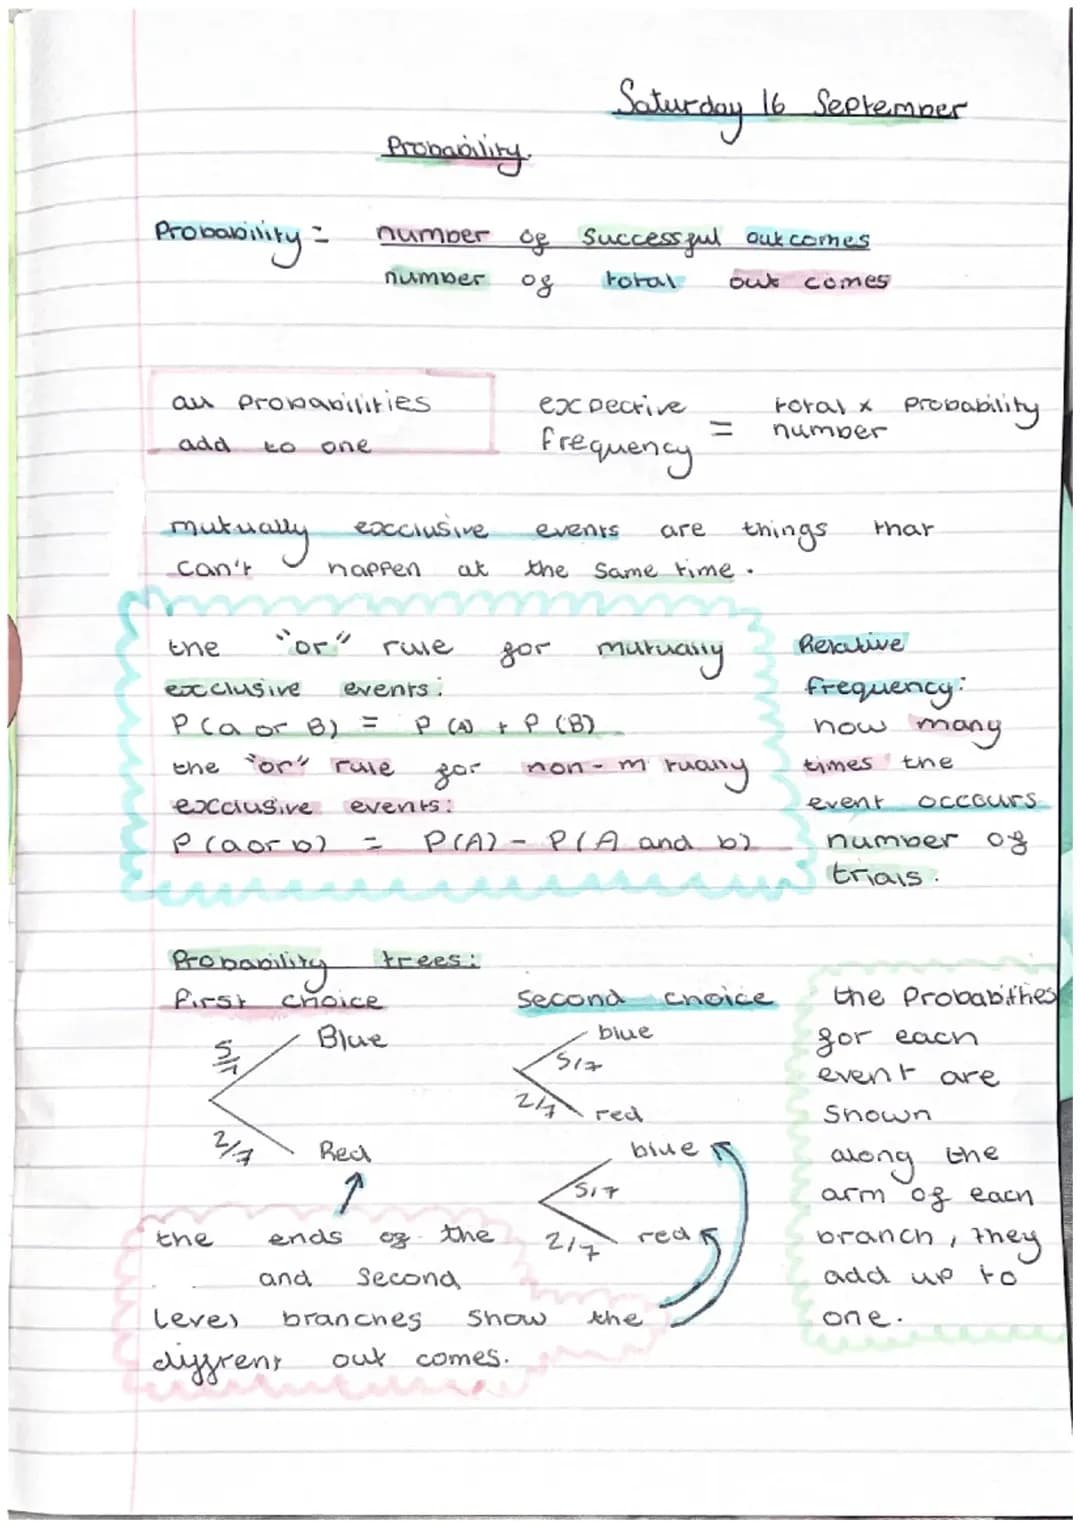 Saturday 16 September
Probability.
Probability = number of successful outcomes
number of total out comes
all probabilities
add to one
excpective frequency = total number x probability
mutually excclusive events are things that
can't happen at the same time.
the "or" rule for mutually
excclusive events:
P (a or B) = P (A) + P (B)
the "or" rule for non-m tually
excclusive events:
P (a or b) = P(A) - P(A and b)
Relative
frequency:
how many
times the
event occours
number of
trials.
Probability trees:
first choice
second choice
Blue
5/7
2/7
Red
blue
5/7
2/7
red
blue
5/7
2/7
red
the ends of the
and second
level branches show the
diffrent out comes.
the probabilities
for each
event are
shown
along the
arm of each
branch, they
add up to
one.